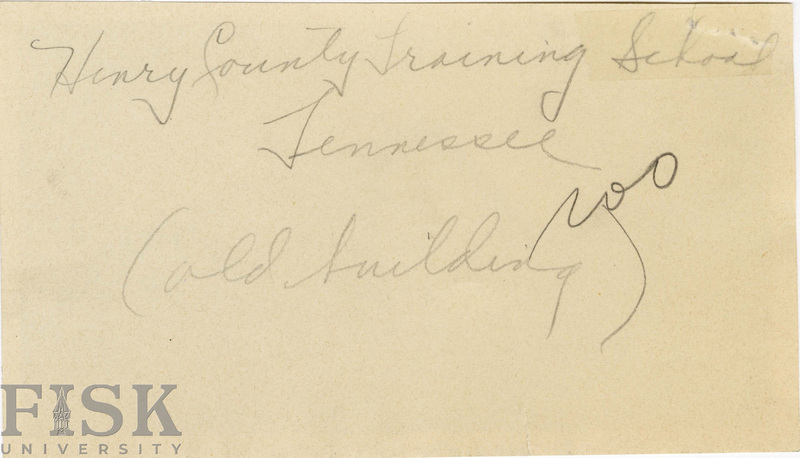 Henry County Training School
Tennessee
(old building)
FISK
UNIVERSITY